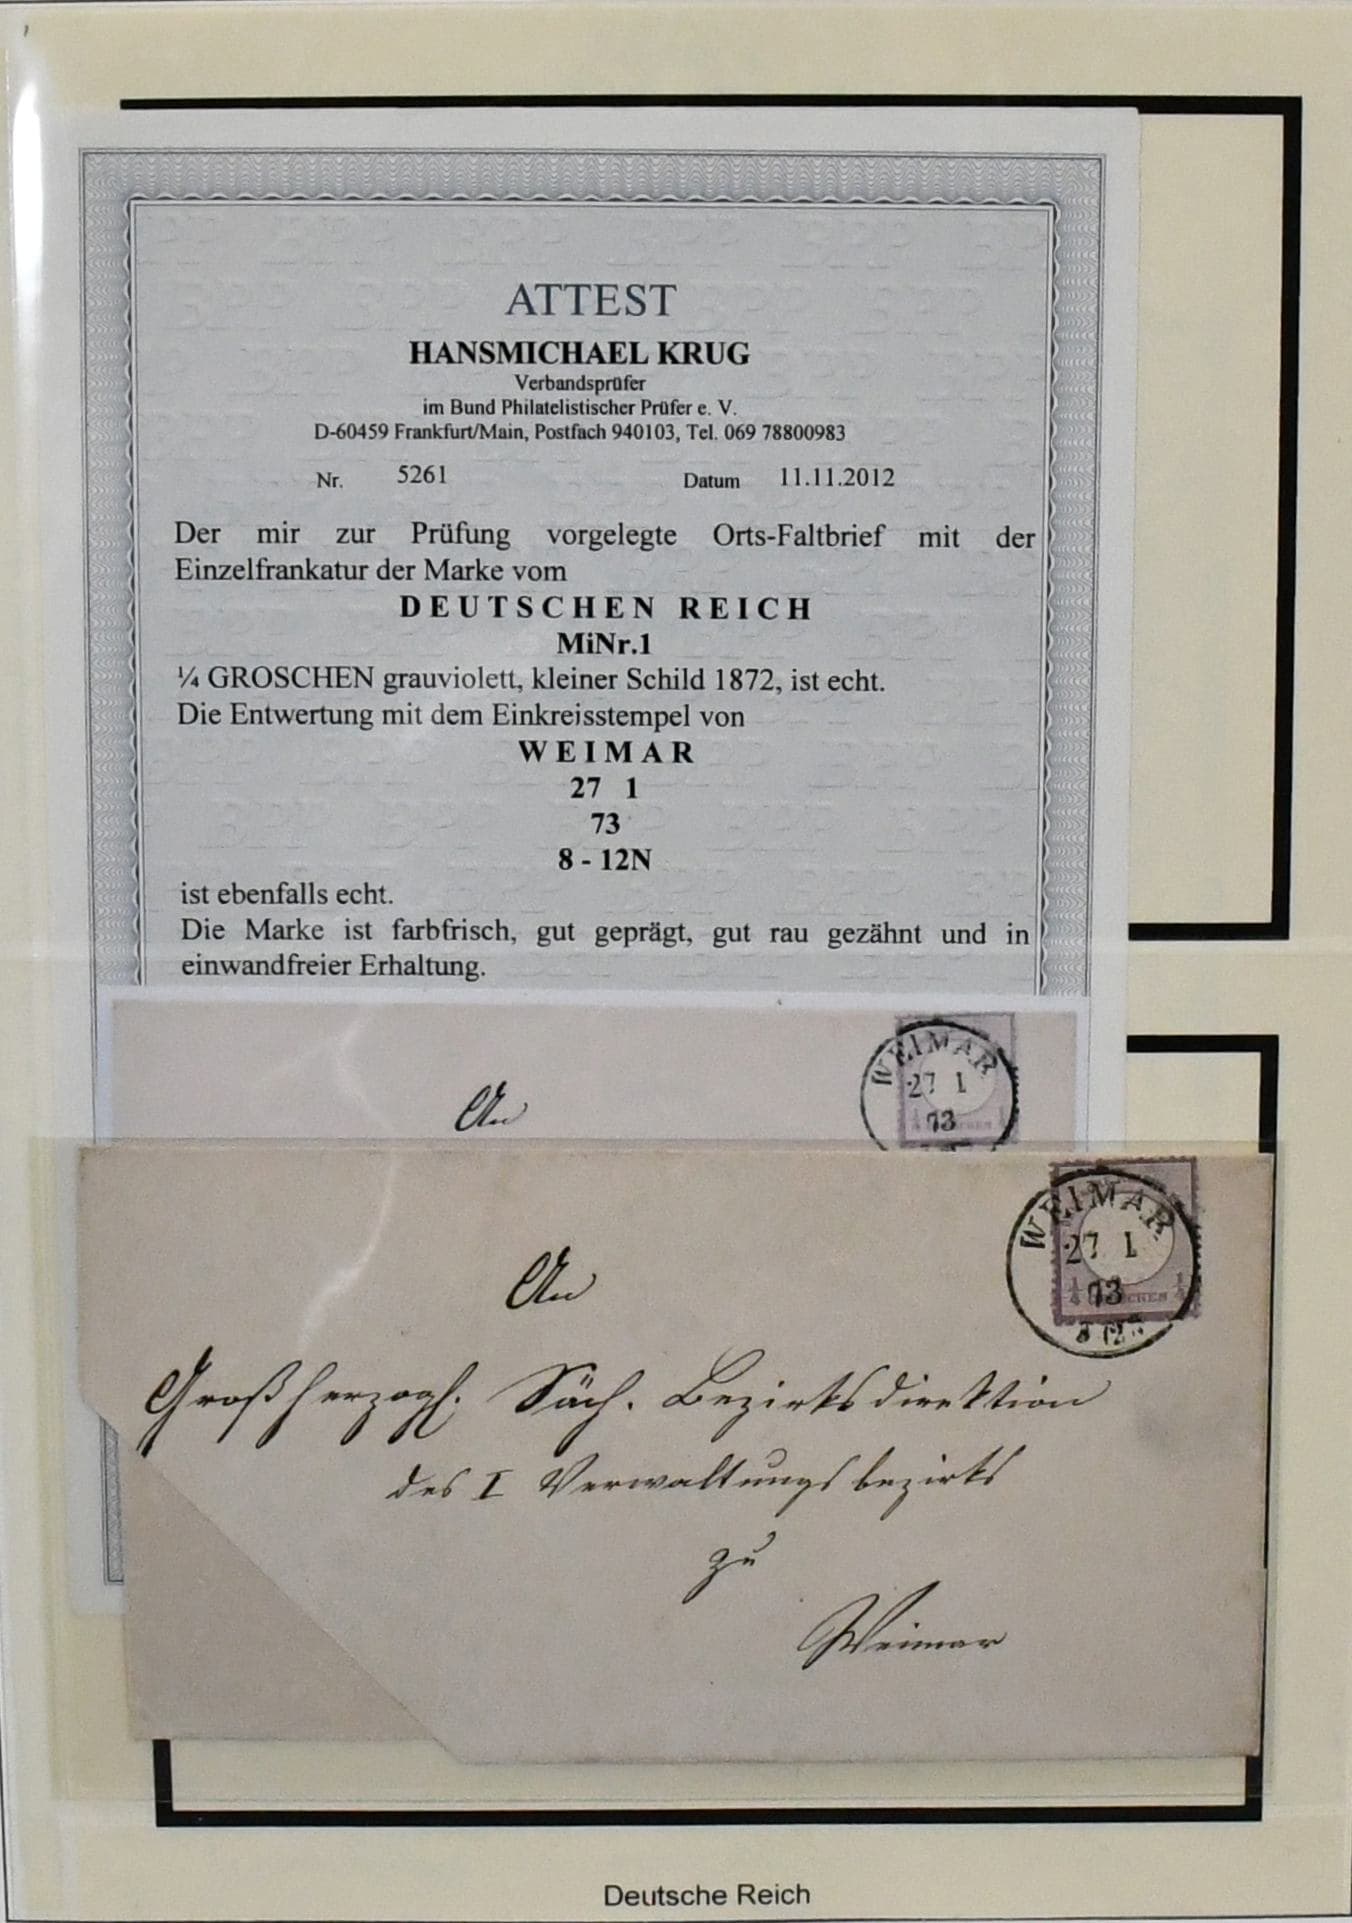 ATTEST
HANSMICHAEL KRUG
Verbandsprüfer
im Bund Philatelistischer Prüfer e. V.
D-60459 Frankfurt/Main, Postfach 940103, Tel. 069 78800983
Nr. 5261 Datum 11.11.2012
Der mir zur Prüfung vorgelegte Orts-Faltbrief mit der
Einzelfrankatur der Marke vom
DEUTSCHEN REICH
MiNr.1
¼ GROSCHEN grauviolett, kleiner Schild 1872, ist echt.
Die Entwertung mit dem Einkreisstempel von
WEIMAR
27 1
73
8 - 12N
ist ebenfalls echt.
Die Marke ist farbfrisch, gut geprägt, gut rau gezähnt und in
einwandfreier Erhaltung.
WEIMAR
27 1
73
An
WEIMAR
27 1
73
¼ ¼
An
Großherzogl. Säch. Bezirksdirektion
des I Verwaltungsbezirks
zu
Weimar
Deutsche Reich